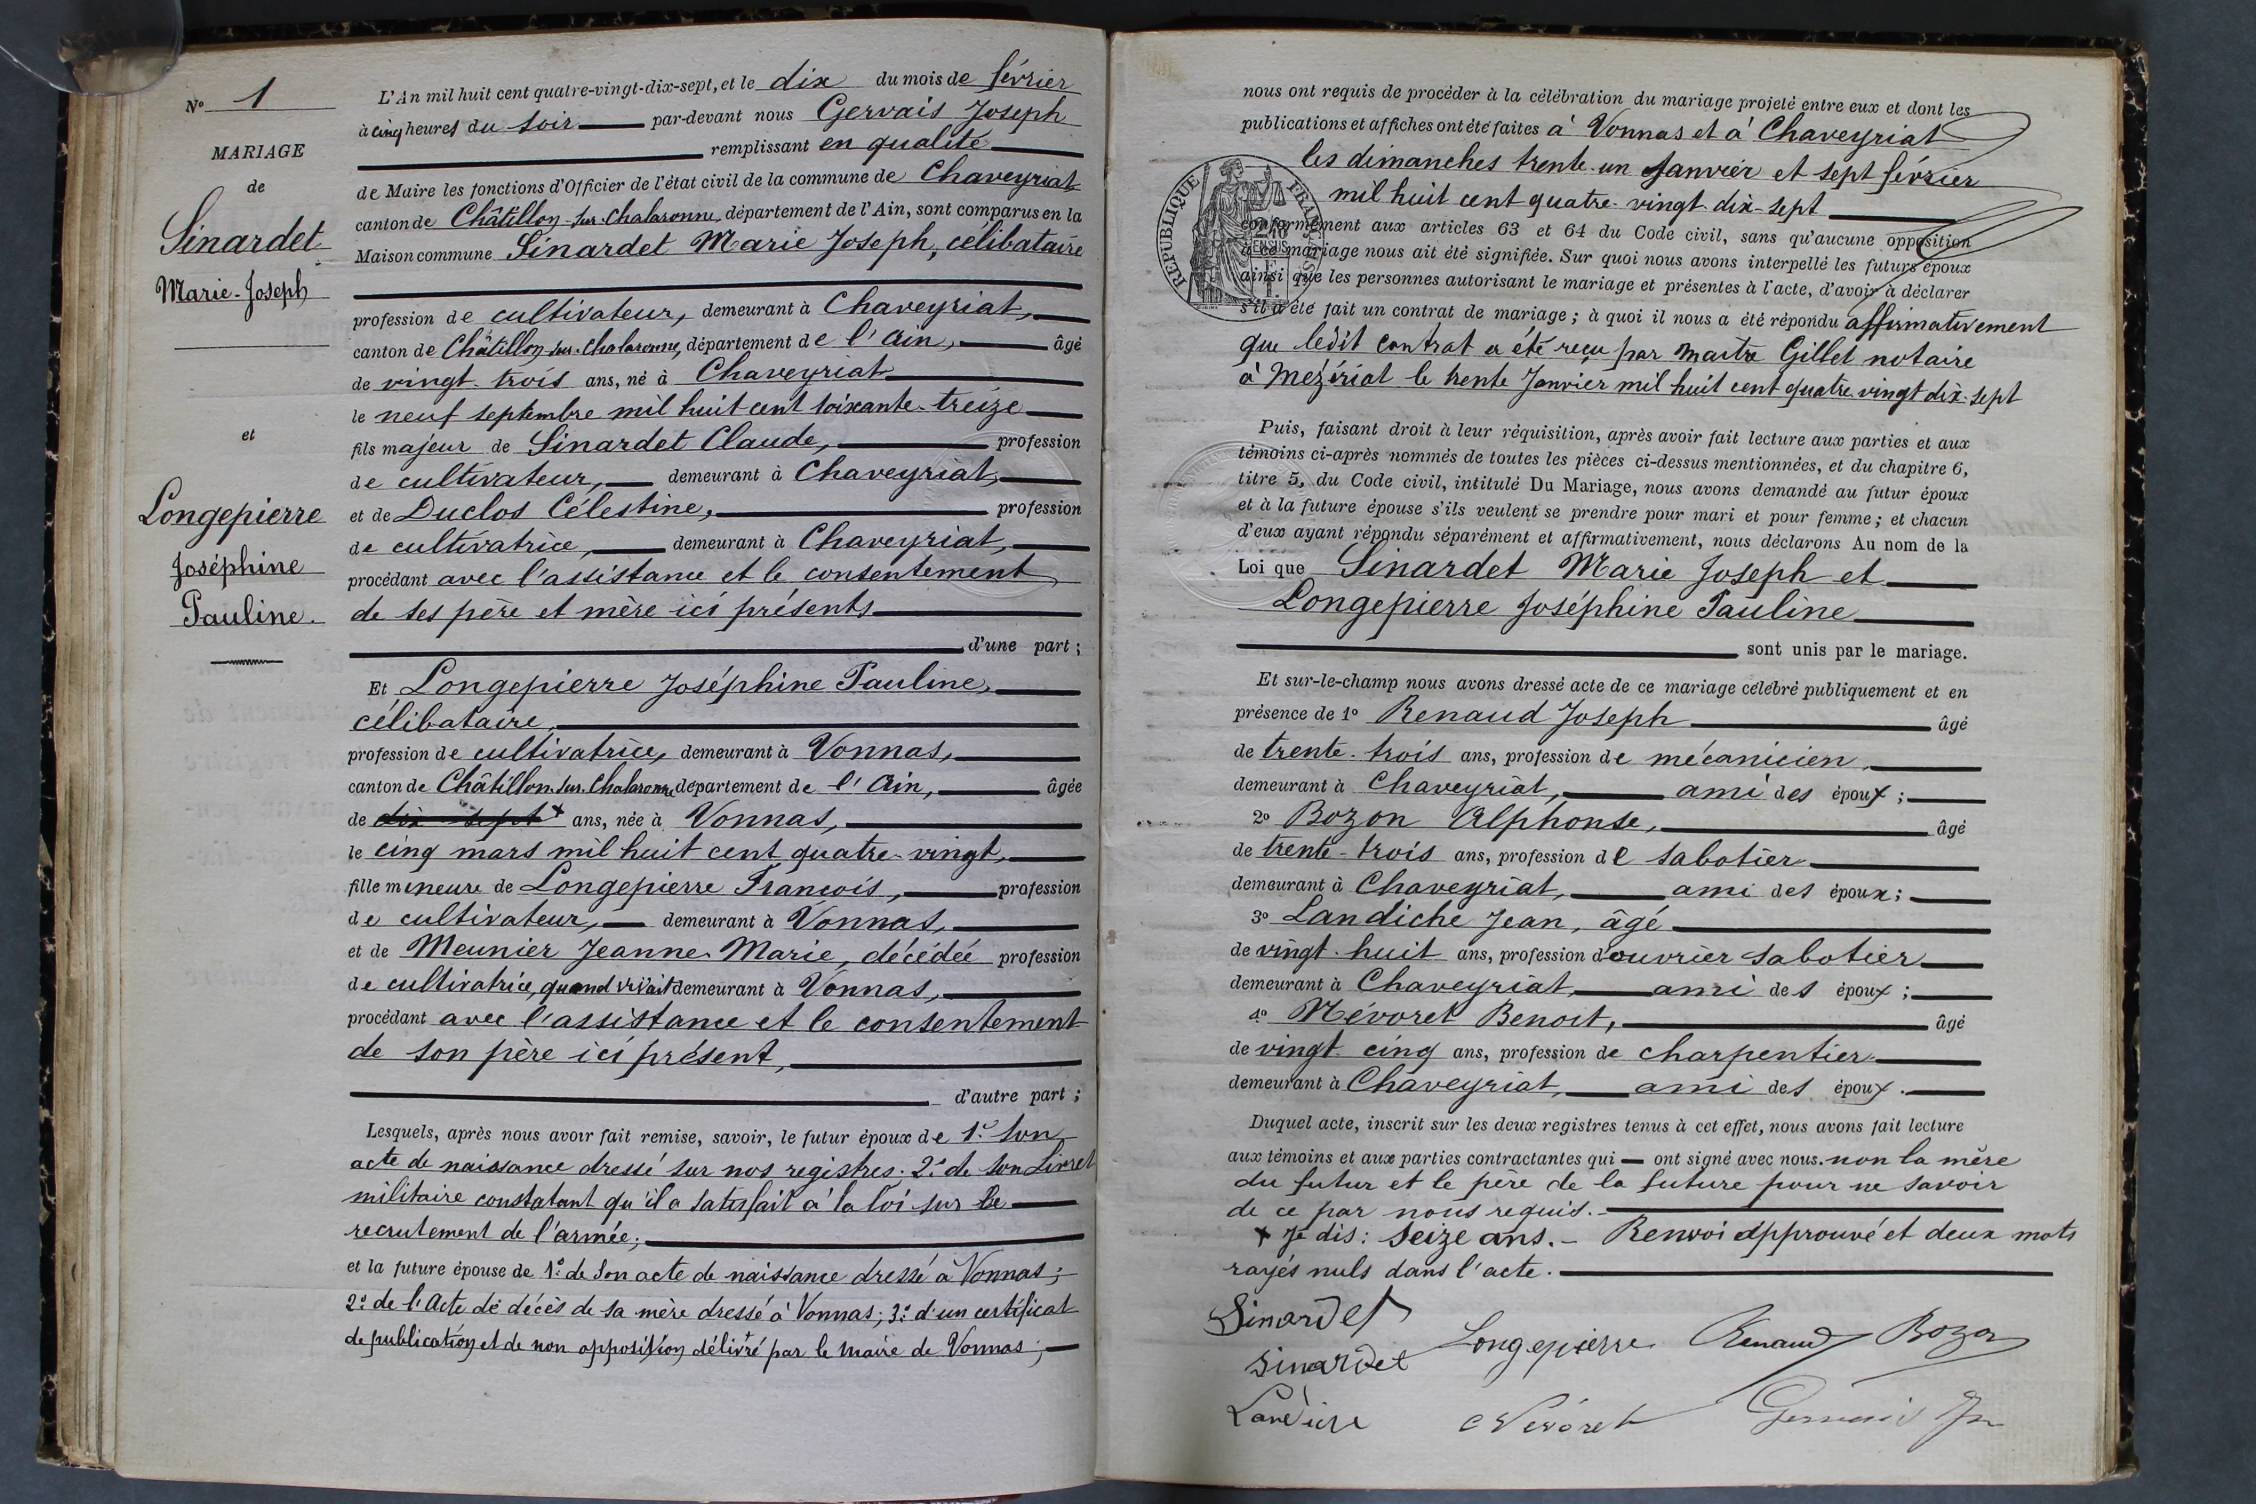 N° 1
MARIAGE
de
Sinardet
Marie-Joseph
et
Longepierre
Joséphine
Pauline.
L'An mil huit cent quatre-vingt-dix-sept, et le dix du mois de février
à cinq heures du soir par-devant nous Gervais Joseph
remplissant en qualité
de Maire les fonctions d'Officier de l'état civil de la commune de Chaveyriat
canton de Châtillon-sur-Chalaronne, département de l'Ain, sont comparus en la
Maison commune Sinardet Marie Joseph, célibataire
profession de cultivateur, demeurant à Chaveyriat,
canton de Châtillon-sur-Chalaronne, département de l'Ain, âgé
de vingt-trois ans, né à Chaveyriat
le neuf septembre mil huit cent soixante-treize
fils majeur de Sinardet Claude, profession
de cultivateur, demeurant à Chaveyriat,
et de Duclos Célestine, profession
de cultivatrice, demeurant à Chaveyriat,
procédant avec l'assistance et le consentement
de ses père et mère ici présents
d'une part ;
Et Longepierre Joséphine Pauline,
célibataire,
profession de cultivatrice, demeurant à Vonnas,
canton de Châtillon-sur-Chalaronne département de l'Ain, âgée
de dix-sept + ans, née à Vonnas,
le cinq mars mil huit cent quatre-vingt,
fille mineure de Longepierre François, profession
de cultivateur, demeurant à Vonnas,
et de Meunier Jeanne-Marie, décédée profession
de cultivatrice, quand vivait demeurant à Vonnas,
procédant avec l'assistance et le consentement
de son père ici présent,
d'autre part ;
Lesquels, après nous avoir fait remise, savoir, le futur époux de 1° Son
acte de naissance dressé sur nos registres. 2° de son Livret
militaire constatant qu'il a satisfait à la loi sur le
recrutement de l'armée;
et la future épouse de 1° de Son acte de naissance dressé à Vonnas ;
2° de l'Acte de décès de sa mère dressé à Vonnas ; 3° d'un certificat
de publication et de non opposition délivré par le maire de Vonnas ;
nous ont requis de procéder à la célébration du mariage projeté entre eux et dont les
publications et affiches ont été faites à Vonnas et à Chaveyriat
les dimanches trente-un Janvier et sept février
mil huit cent quatre-vingt-dix-sept
RÉPUBLIQUE FRANÇAISE
conformément aux articles 63 et 64 du Code civil, sans qu'aucune opposition
à ce mariage nous ait été signifiée. Sur quoi nous avons interpellé les futurs époux
ainsi que les personnes autorisant le mariage et présentes à l'acte, d'avoir à déclarer
s'il a été fait un contrat de mariage ; à quoi il nous a été répondu affirmativement
que ledit contrat a été reçu par maître Gillet notaire
à Mézériat le trente Janvier mil huit cent quatre vingt dix-sept
Puis, faisant droit à leur réquisition, après avoir fait lecture aux parties et aux
témoins ci-après nommés de toutes les pièces ci-dessus mentionnées, et du chapitre 6,
titre 5, du Code civil, intitulé Du Mariage, nous avons demandé au futur époux
et à la future épouse s'ils veulent se prendre pour mari et pour femme ; et chacun
d'eux ayant répondu séparément et affirmativement, nous déclarons Au nom de la
Loi que Sinardet Marie Joseph et
Longepierre Joséphine Pauline
sont unis par le mariage.
Et sur-le-champ nous avons dressé acte de ce mariage célébré publiquement et en
présence de 1° Renaud Joseph âgé
de trente-trois ans, profession de mécanicien,
demeurant à Chaveyriat, ami des époux ;
2° Bozon Alphonse, âgé
de trente-trois ans, profession de sabotier
demeurant à Chaveyriat, ami des époux ;
3° Landiche Jean, âgé
de vingt-huit ans, profession d'ouvrier sabotier
demeurant à Chaveyriat, ami des époux ;
4° Mévoret Benoit, âgé
de vingt cinq ans, profession de charpentier
demeurant à Chaveyriat, ami des époux.
Duquel acte, inscrit sur les deux registres tenus à cet effet, nous avons fait lecture
aux témoins et aux parties contractantes qui ont signé avec nous. non la mère
du futur et le père de la future pour ne savoir
de ce par nous requis.
+ Je dis : seize ans. - Renvoi approuvé et deux mots
rayés nuls dans l'acte.
Sinardet
Longepierre Renaud Bozon
Sinardet